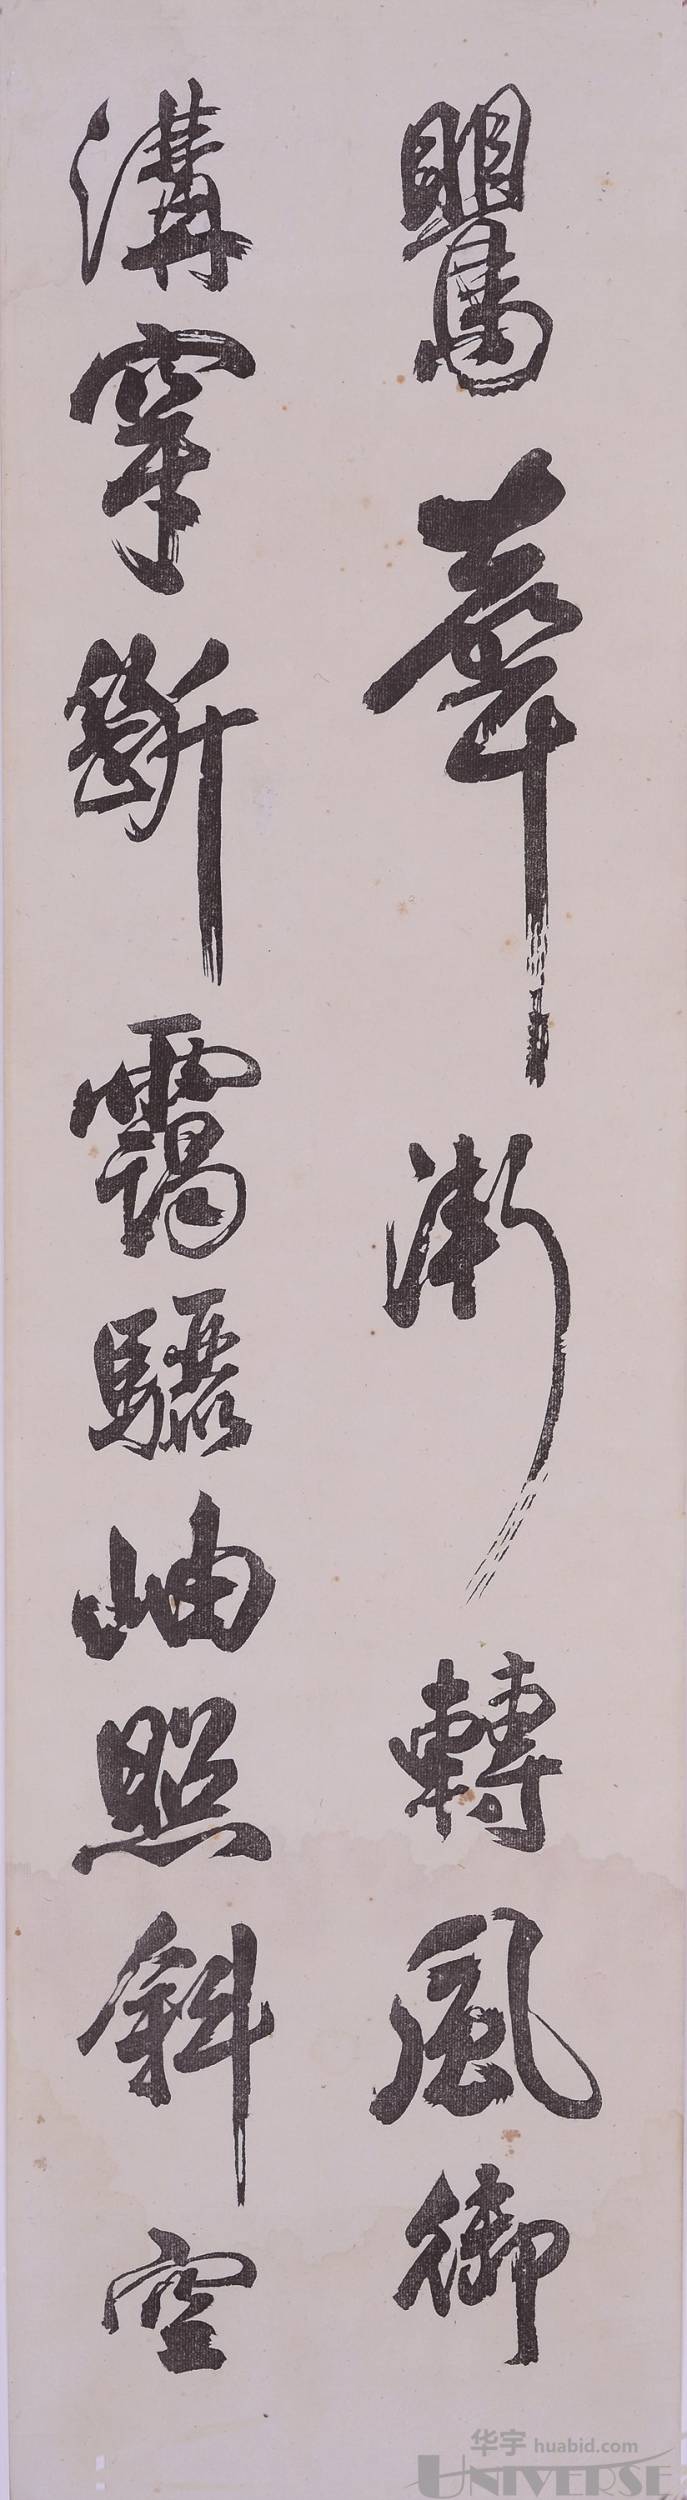 鸎聲漸轉風御
溝穿斷靄驪岫照斜空
华宇 huabid.com
UNIVERSE